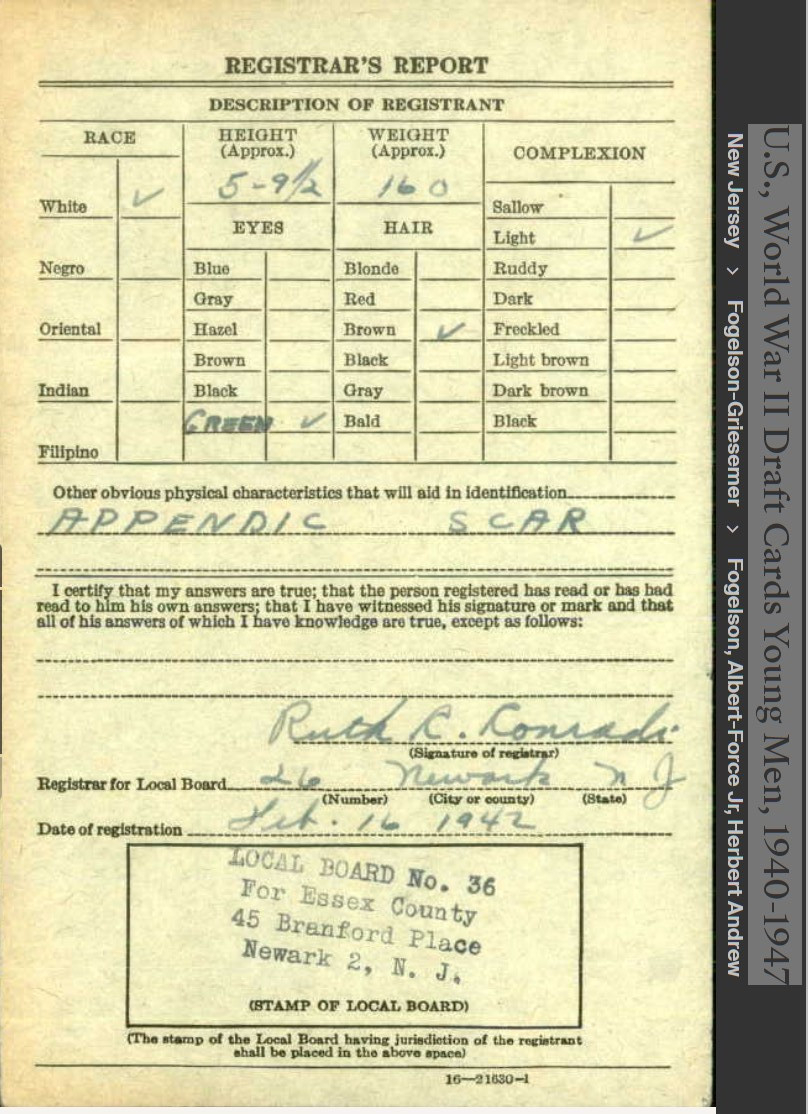 REGISTRAR'S REPORT
DESCRIPTION OF REGISTRANT
RACE
HEIGHT
(Approx.)
WEIGHT
(Approx.)
COMPLEXION
5-9½
160
White ✓
Sallow
EYES
HAIR
Light ✓
Negro
Blue
Blonde
Ruddy
Gray
Red
Dark
Oriental
Hazel
Brown ✓
Freckled
Brown
Black
Light brown
Indian
Black
Gray
Dark brown
GREEN ✓
Bald
Black
Filipino
Other obvious physical characteristics that will aid in identification
APPENDIC SCAR
I certify that my answers are true; that the person registered has read or has had
read to him his own answers; that I have witnessed his signature or mark and that
all of his answers of which I have knowledge are true, except as follows:
Ruth C. Conradi
(Signature of registrar)
Registrar for Local Board 26 Newark N J
(Number) (City or county) (State)
Date of registration Feb. 16 1942
LOCAL BOARD No. 36
For Essex County
45 Branford Place
Newark 2, N. J.
(STAMP OF LOCAL BOARD)
(The stamp of the Local Board having jurisdiction of the registrant
shall be placed in the above space)
16—21630-1
U.S., World War II Draft Cards Young Men, 1940-1947
New Jersey > Fogelson-Griesemer > Fogelson, Albert-Force Jr, Herbert Andrew